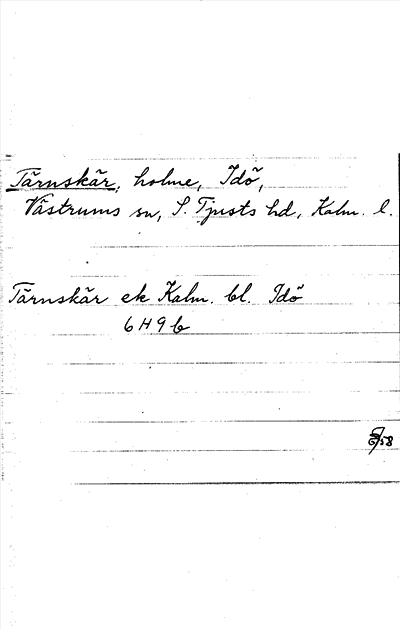 Tärnskär, holme, Idö,
Västrums sn, S. Tjusts hd, Kalm. l.
Tärnskär ek Kalm. bl. Idö
6 H 9 b
58